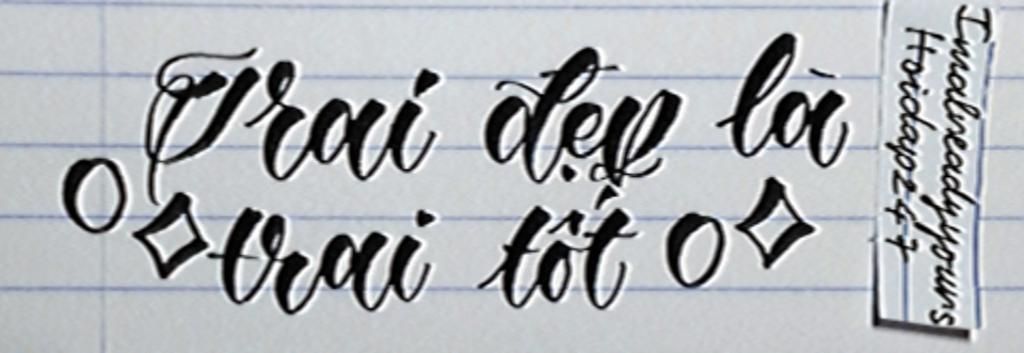 Trai đẹp là
trai tốt
Imalreadyyours
Hoidap247